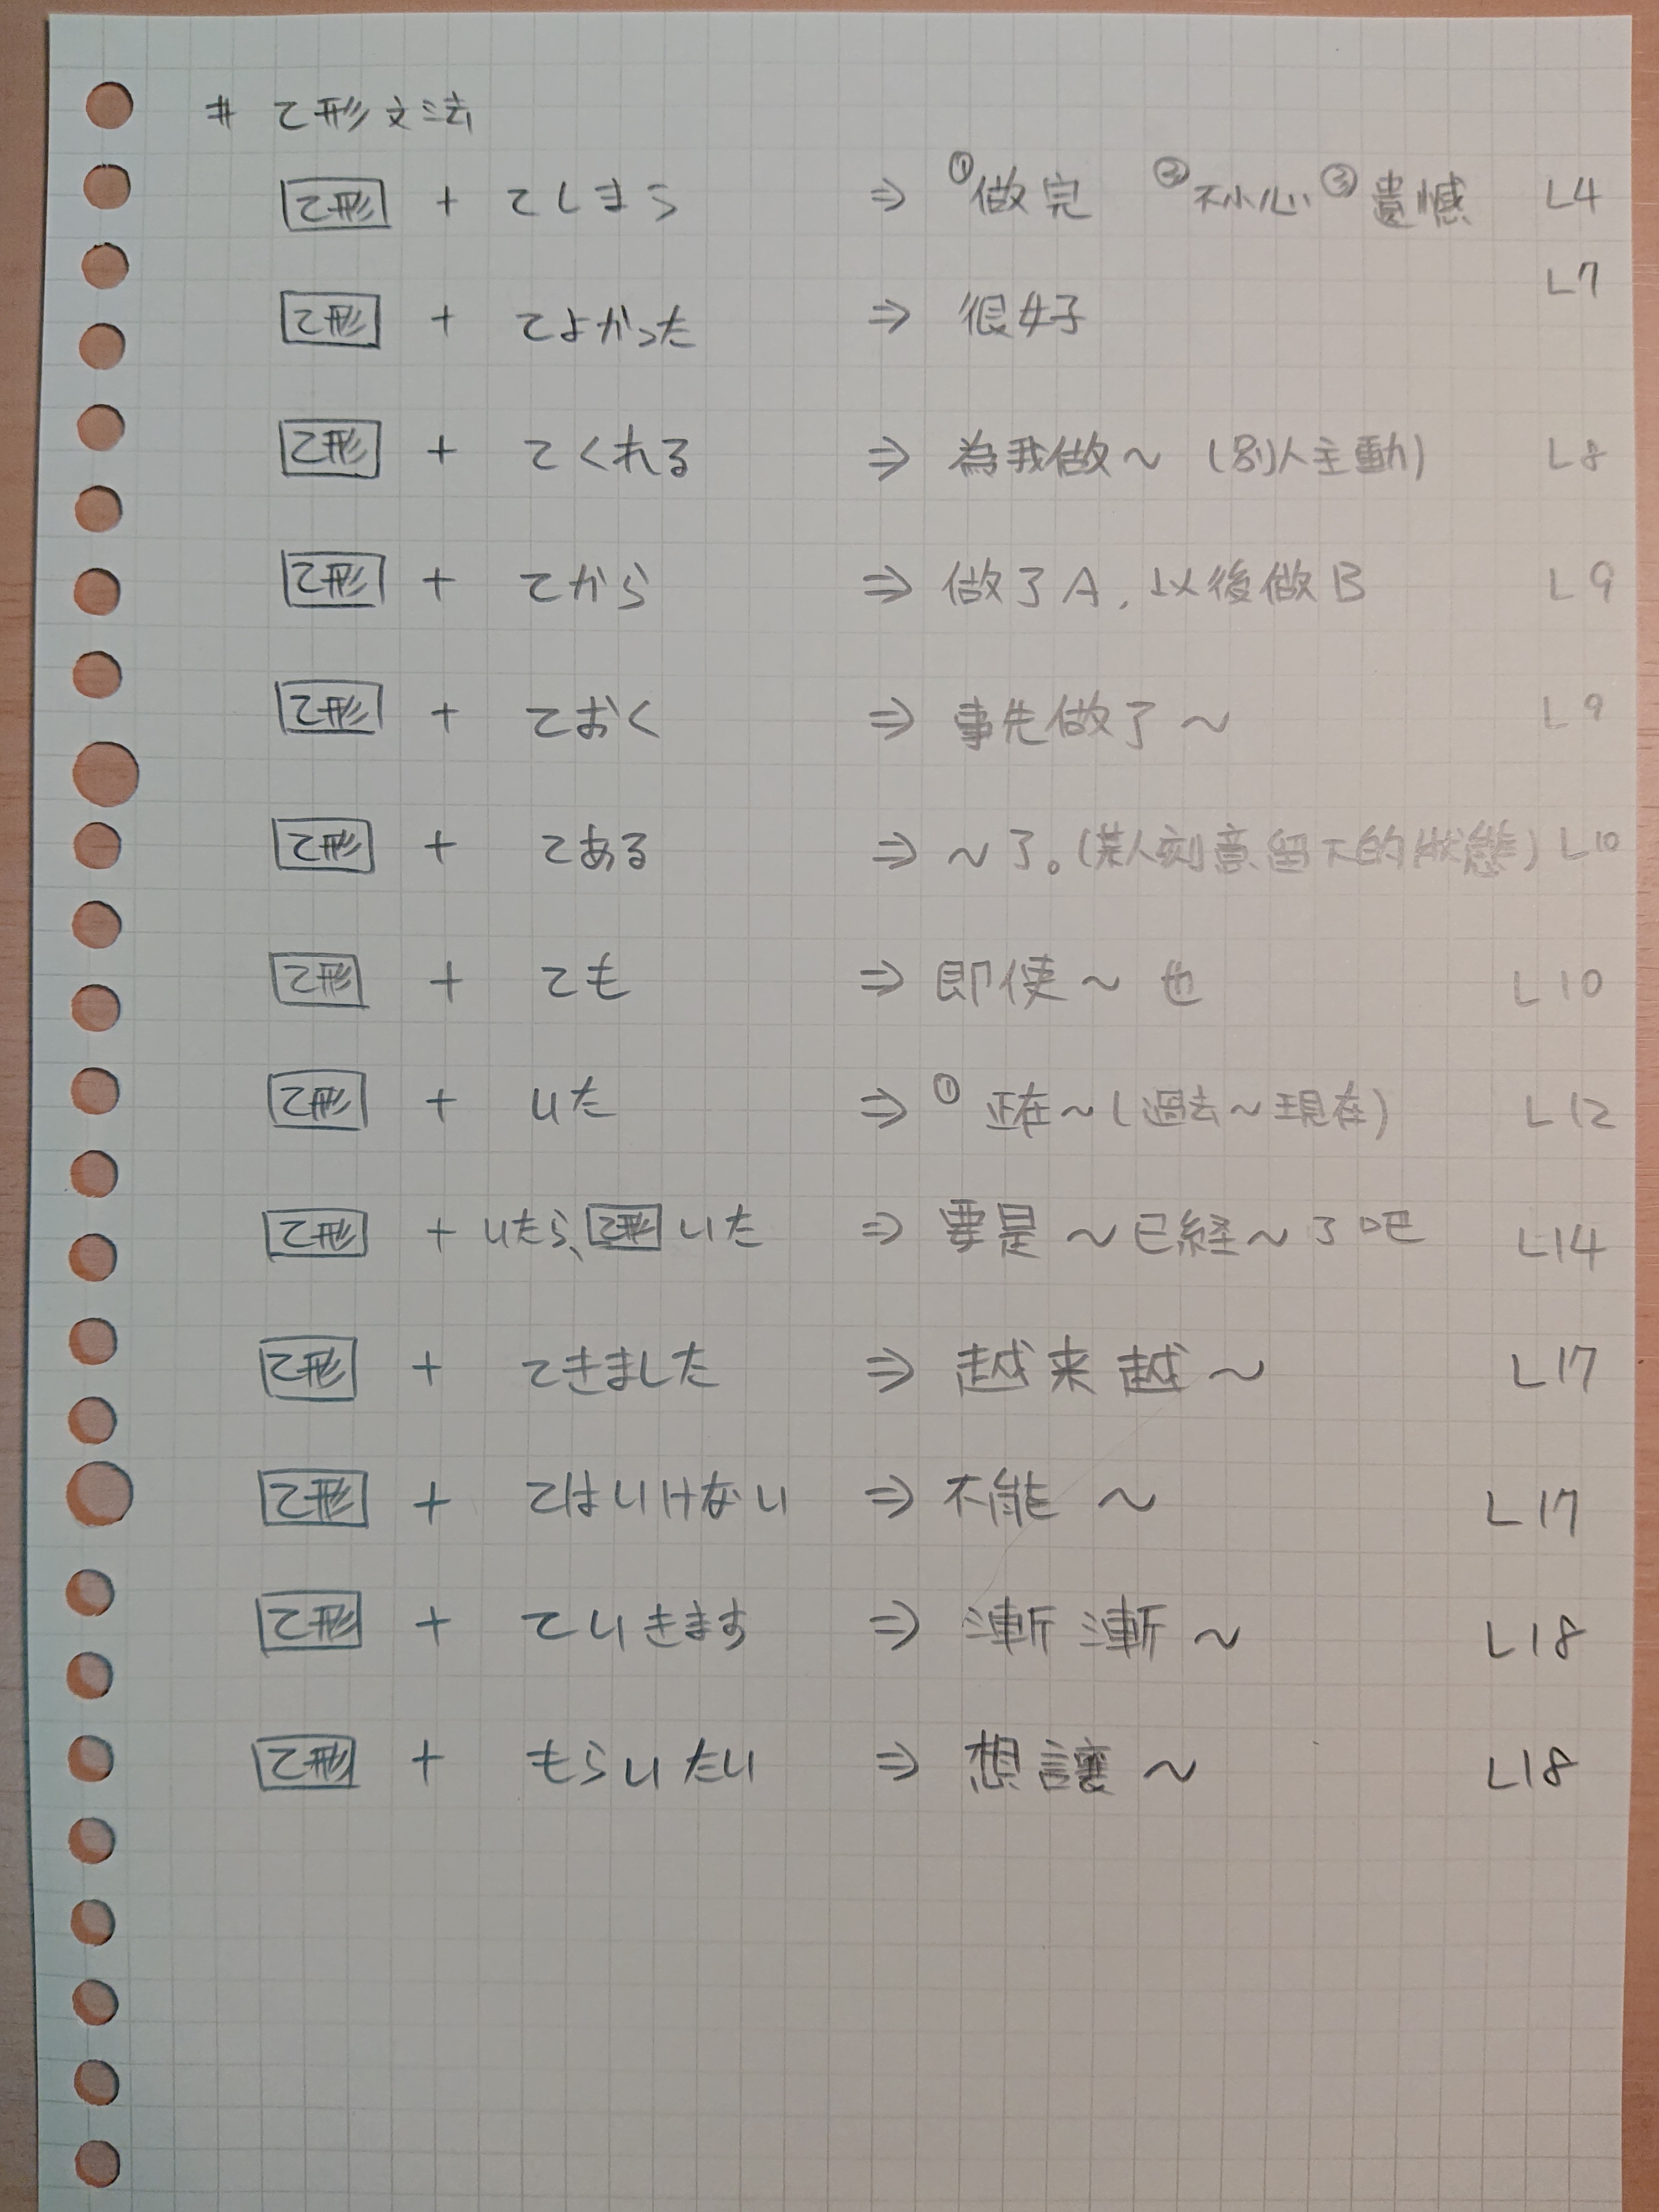 # て形文法
て形 + てしまう ⇒ ①做完 ②不小心 ③遺憾 L4
て形 + てよかった ⇒ 很好 L7
て形 + てくれる ⇒ 為我做~(別人主動) L8
て形 + てから ⇒ 做了A, 以後做B L9
て形 + ておく ⇒ 事先做了~ L9
て形 + てある ⇒ ~了。(某人刻意留下的狀態) L10
て形 + ても ⇒ 即使~也 L10
て形 + いた ⇒ ① 正在~(過去~現在) L12
て形 + いたら、て形いた ⇒ 要是~已経~了吧 L14
て形 + てきました ⇒ 越来越~ L17
て形 + てはいけない ⇒ 不能~ L17
て形 + ていきます ⇒ 漸漸~ L18
て形 + もらいたい ⇒ 想讓~ L18